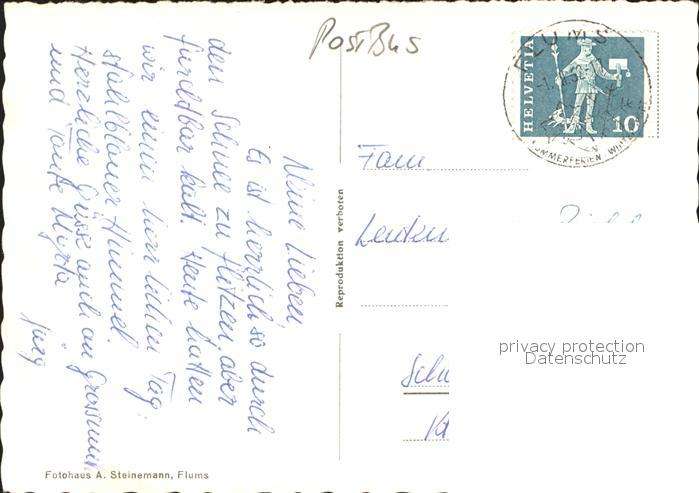 PostBus
FLUMS
SOMMERFERIEN
HELVETIA
10
Fam
Reproduktion verboten
privacy protection
Datenschutz
Meine Lieben,
Es ist herrlich so durch
den Schnee zu flitzen, aber
furchtbar kalt. Heute hatten
wir einen herrlichen Tag:
stahlblauer Himmel.
Herzliche Grüsse auch an Grossmutti
und Tante Myrta
Jürg
Fotohaus A. Steinemann, Flums